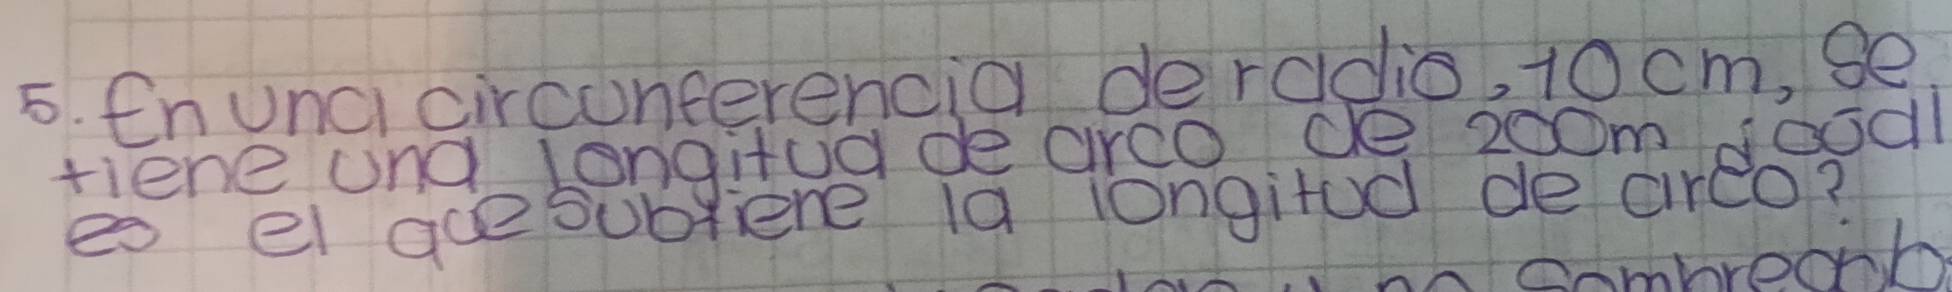 5. En una circunferencia de radio, 10 cm, se
tiene una longitud de arco de 200m ¿cuál
es el que subtiene la longitud de arco?